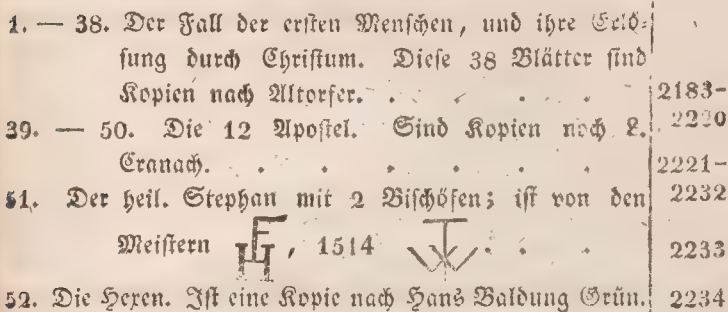 1. — 38. Der Fall der ersten Menschen, und ihre Erlö-
sung durch Christum. Diese 38 Blätter sind
Kopien nach Altorfer. . . . . . 2183-
39. — 50. Die 12 Apostel. Sind Kopien nach L. 2220
Cranach. . . . . . . 2221-
51. Der heil. Stephan mit 2 Bischöfen; ist von den 2232
Meistern HF, 1514 . . . 2233
52. Die Hexen. Ist eine Kopie nach Hans Baldung Grün. 2234